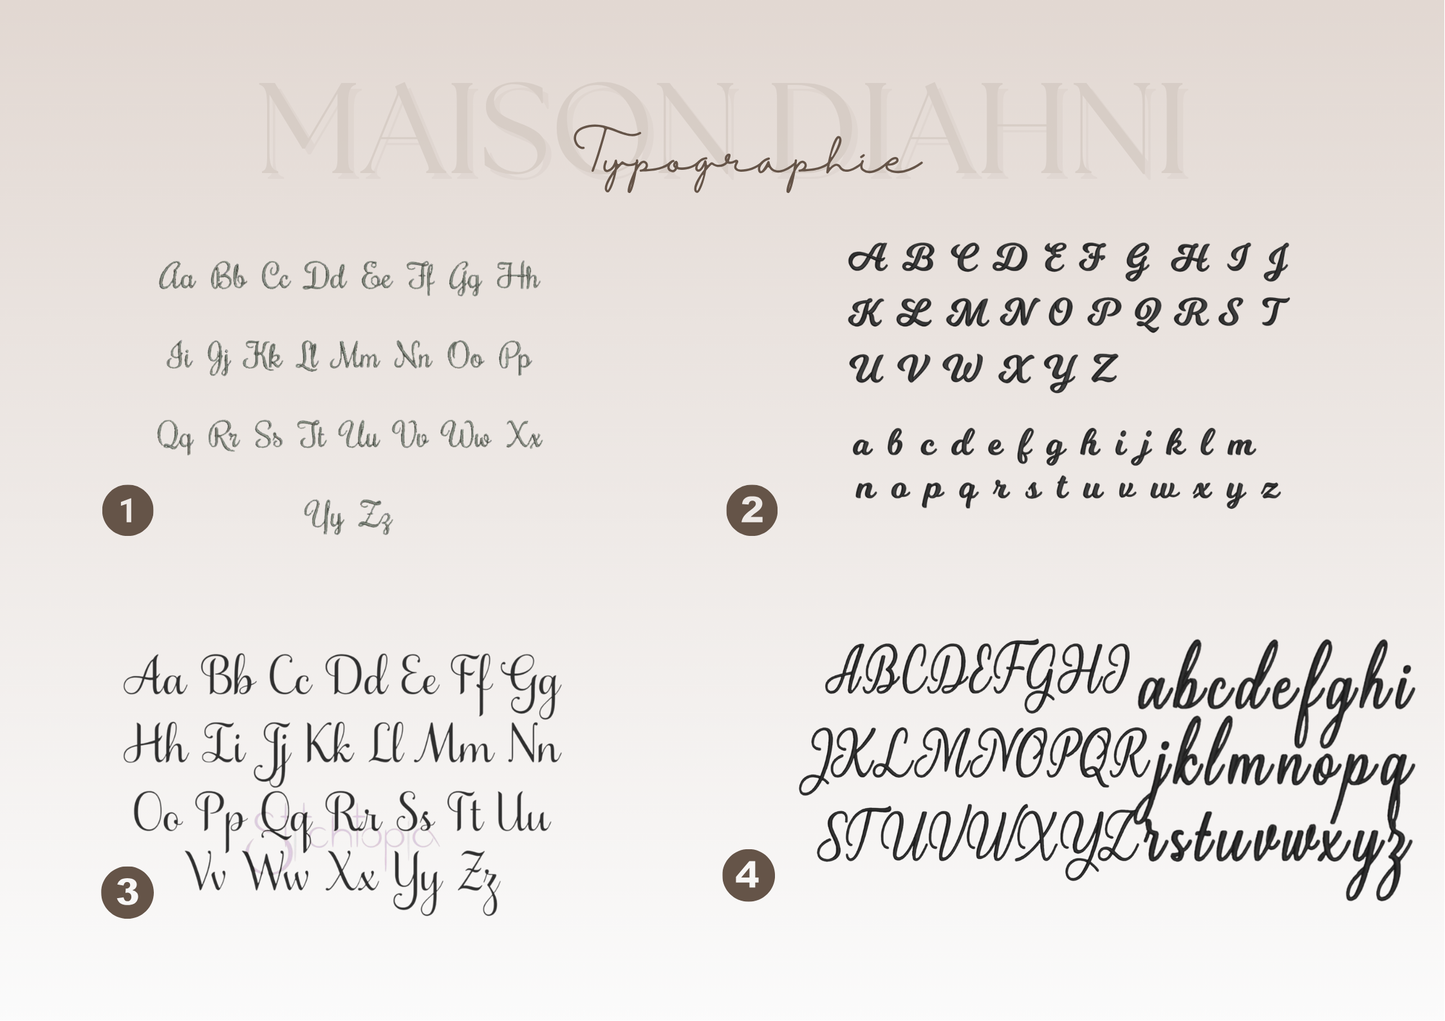 MAISON DIAHNI
Typographie
Aa Bb Cc Dd Ee Ff Gg Hh
Ii Jj Kk Ll Mm Nn Oo Pp
Qq Rr Ss Tt Uu Vv Ww Xx
Yy Zz
1
A B C D E F G H I J
K L M N O P Q R S T
U V W X Y Z
a b c d e f g h i j k l m
n o p q r s t u v w x y z
2
Aa Bb Cc Dd Ee Ff Gg
Hh Ii Jj Kk Ll Mm Nn
Oo Pp Qq Rr Ss Tt Uu
Stichtopia
Vv Ww Xx Yy Zz
3
ABCDEFGHI
JKLMNOPQR
STUVWXYZ
abcdefghi
jklmnopq
rstuvwxyz
4